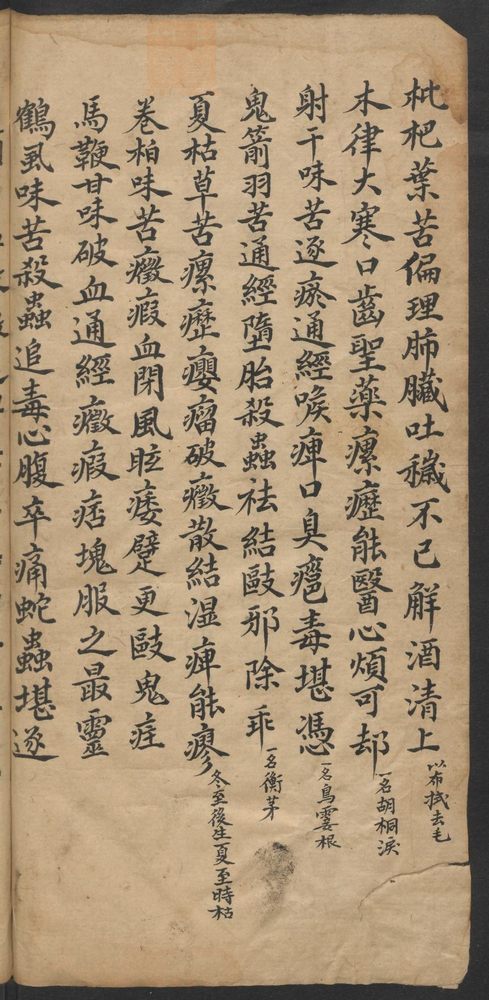 枇杷葉苦偏理肺臟吐穢不已解酒清上 以布拭去毛
木律大寒口齒聖藥瘰癧能醫心煩可却 一名胡桐淚
射干味苦逐瘀通經喉痺口臭癰毒堪憑 一名烏霎根
鬼箭羽苦通經墮胎殺蟲祛結敺邪除乖 一名衡茅
夏枯草苦瘰癧癭瘤破癥散結湿痺能瘳 冬至後生夏至時枯
卷柏味苦癥瘕血閉風眩痿躄更敺鬼疰
馬鞭甘味破血通經癥瘕痞塊服之最靈
鶴虱味苦殺蟲追毒心腹卒痛蛇蟲堪逐